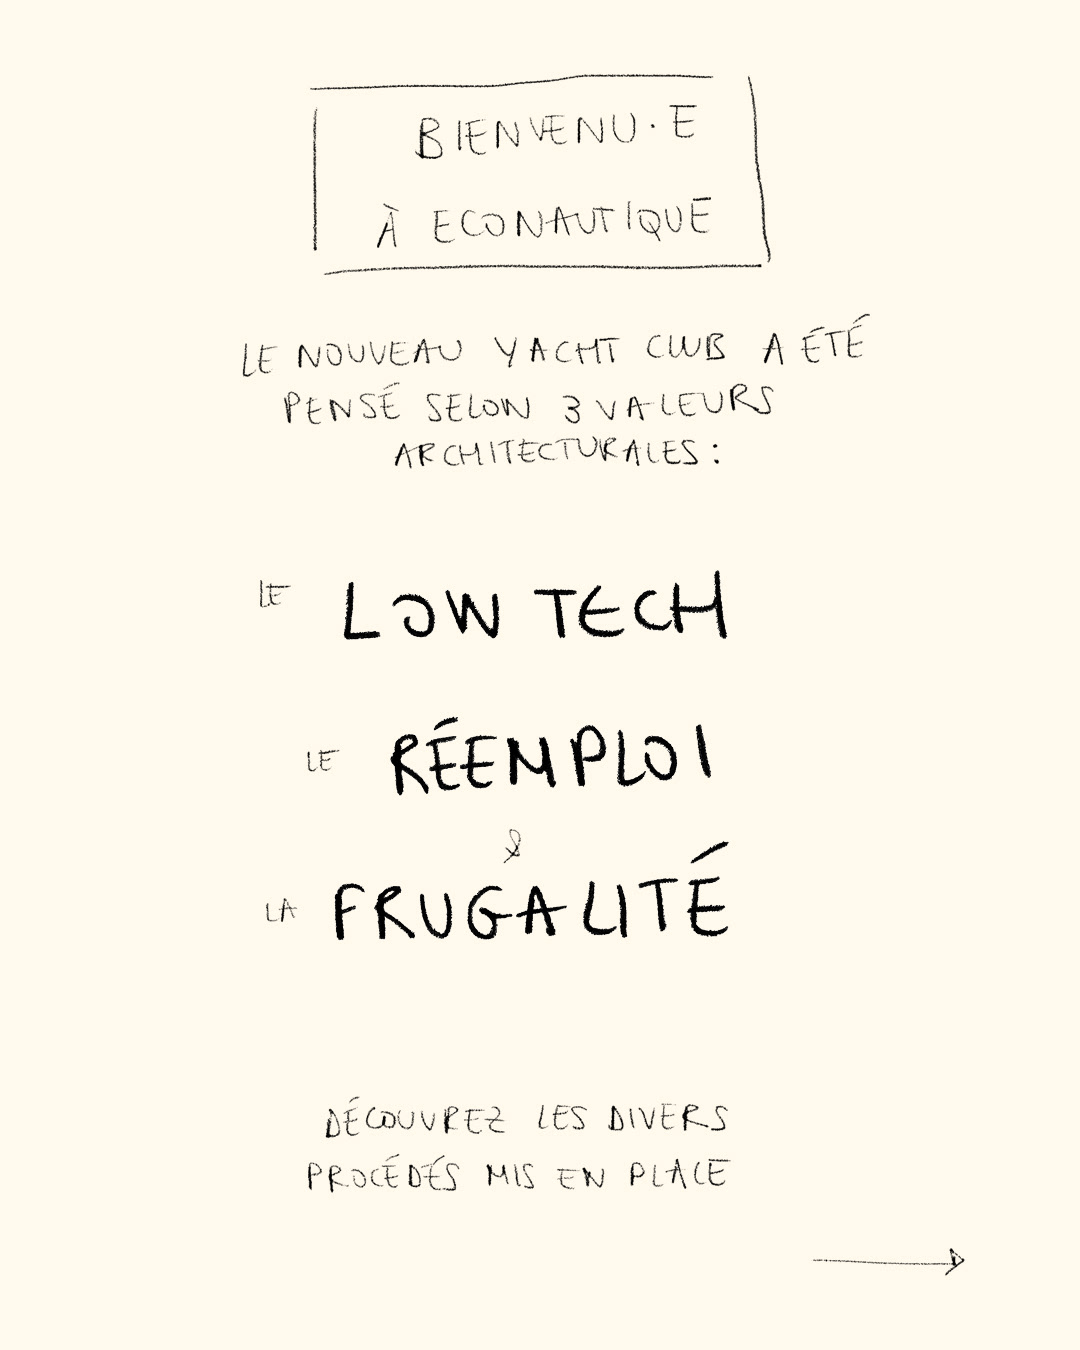 BIENVENU·E
À ECONAUTIQUE
LE NOUVEAU YACHT CLUB A ÉTÉ
PENSÉ SELON 3 VALEURS
ARCHITECTURALES :
LE LOW TECH
LE RÉEMPLOI
&
LA FRUGALITÉ
DÉCOUVREZ LES DIVERS
PROCÉDÉS MIS EN PLACE